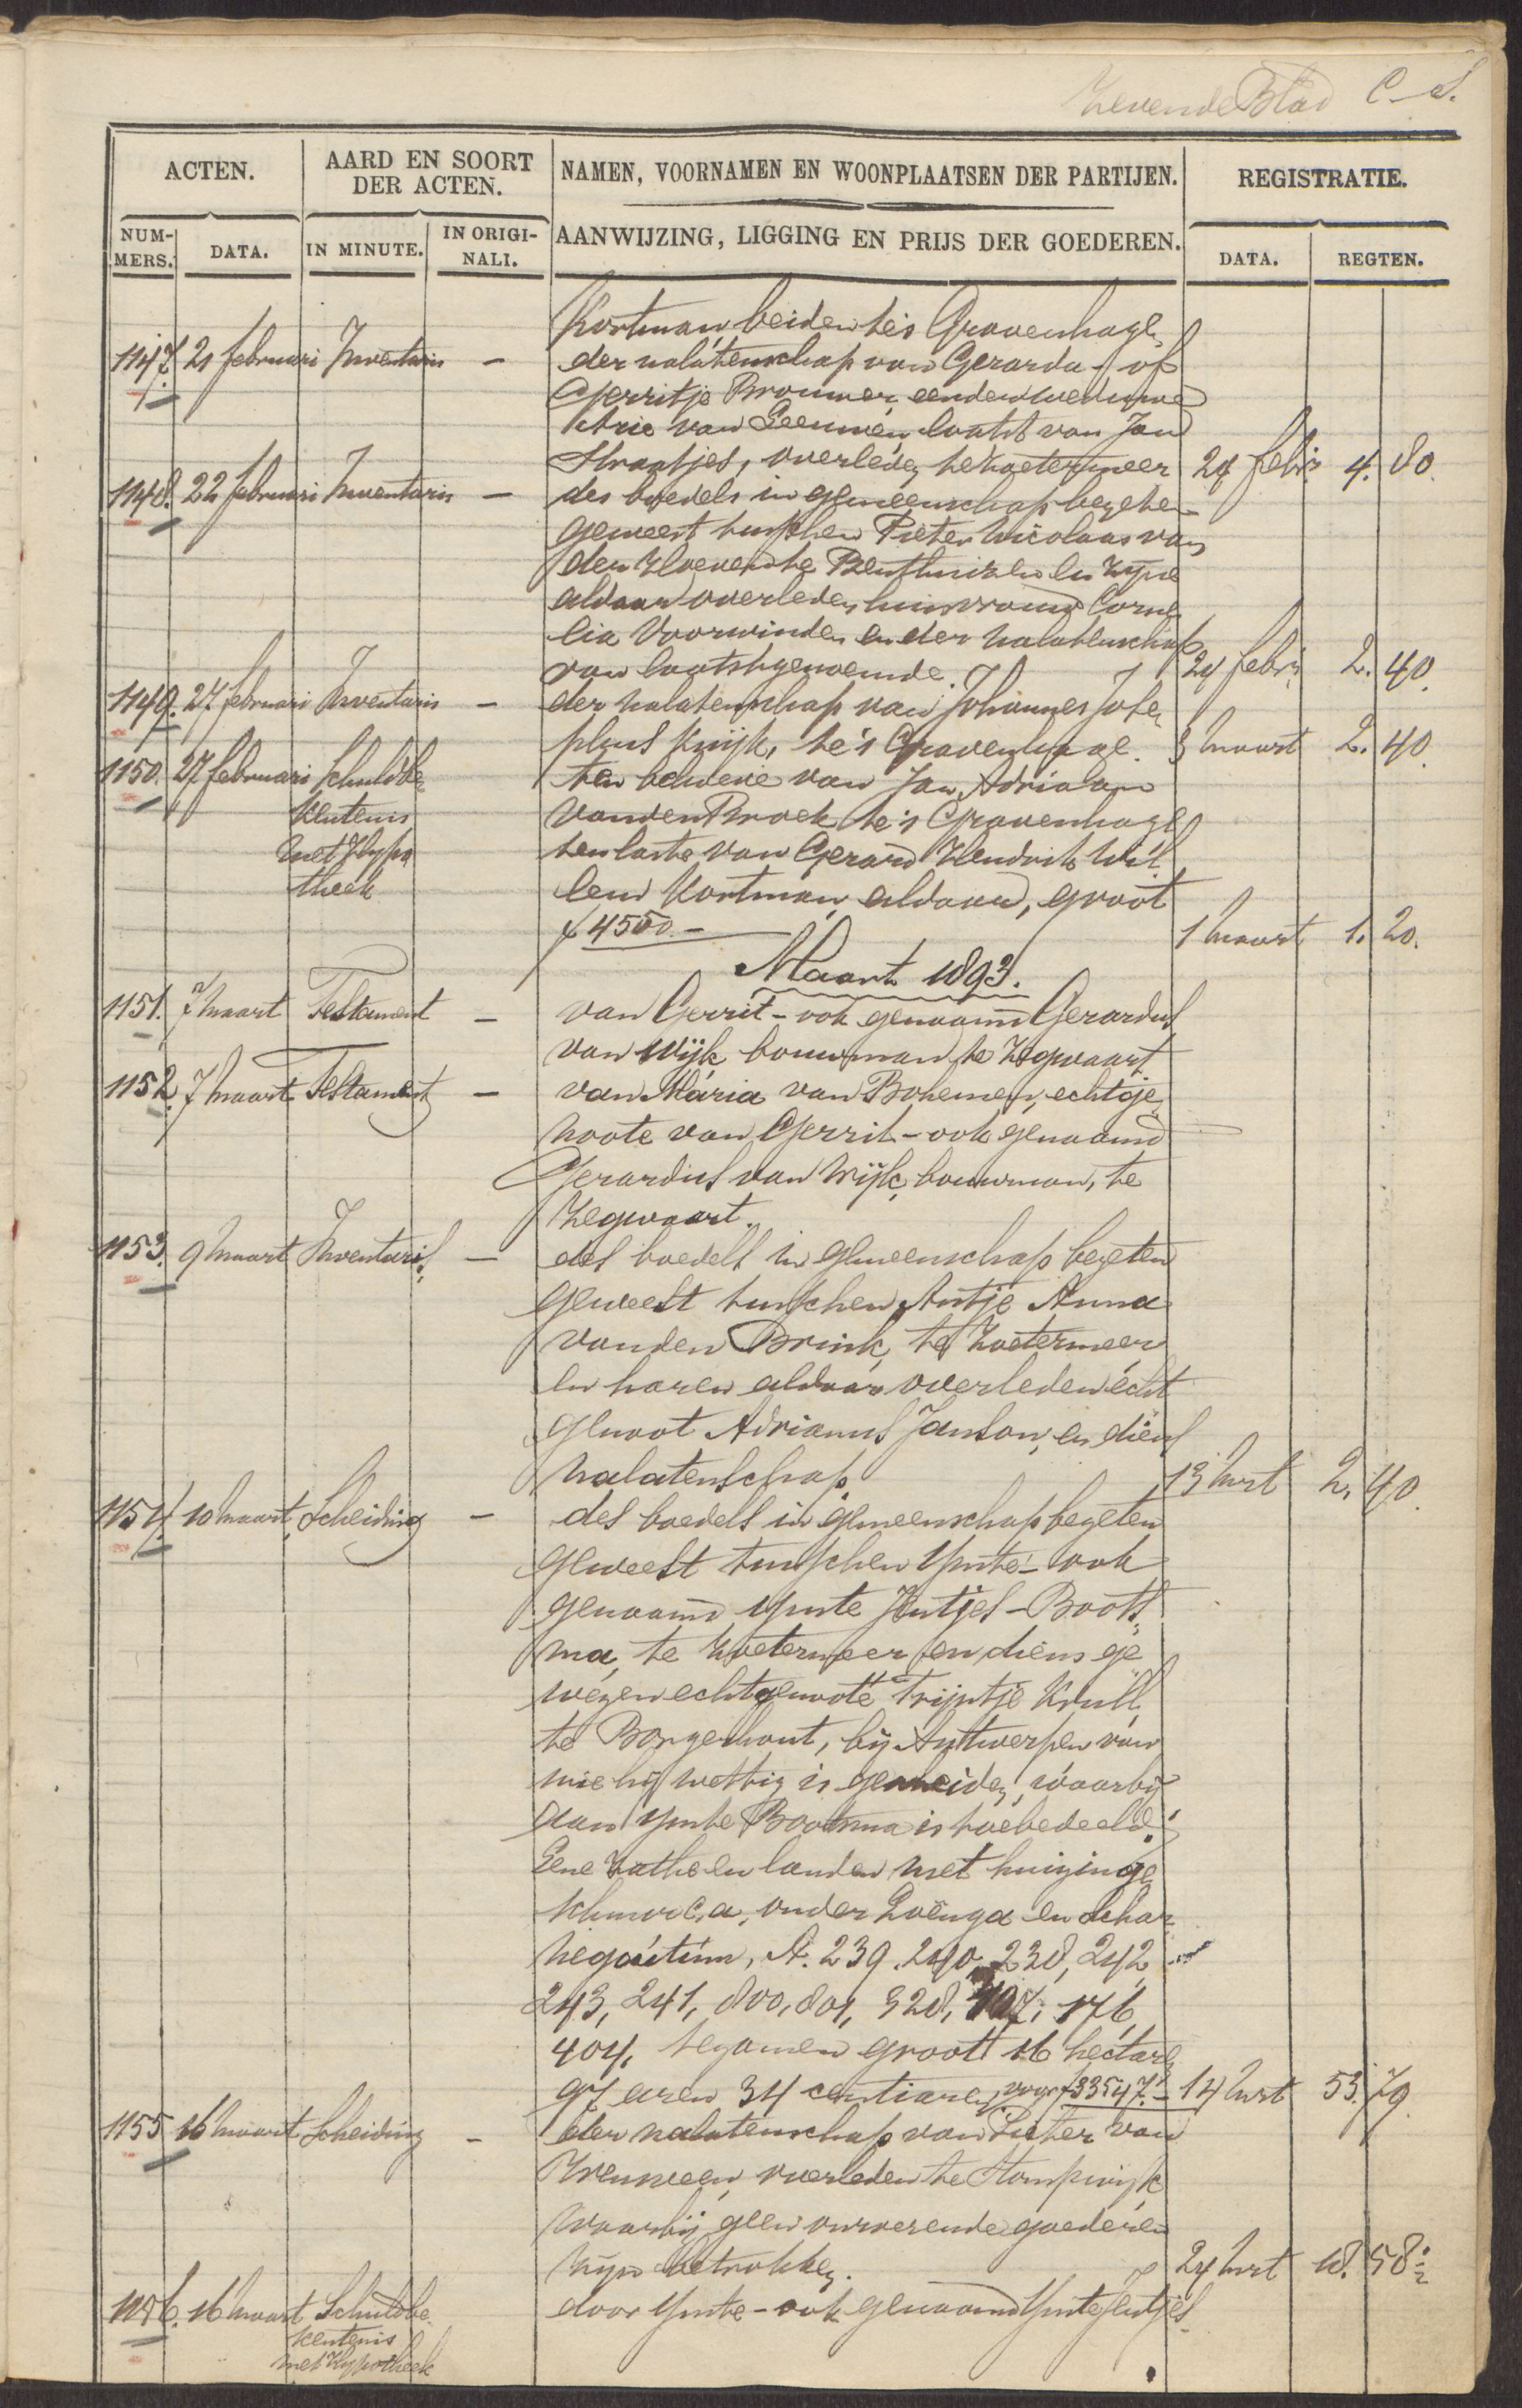 Zevende Blad C. S.
ACTEN. AARD EN SOORT DER ACTEN. NAMEN, VOORNAMEN EN WOONPLAATSEN DER PARTIJEN. REGISTRATIE.
NUMMERS. DATA. IN MINUTE. IN ORIGINALI. AANWIJZING, LIGGING EN PRIJS DER GOEDEREN. DATA. REGTEN.
Kortman, beiden te 's Gravenhage
1147. 21 februari Inventaris — der nalatenschap van Gerarda - of
Gerritje Brouwer, eerder weduwe
Arie van Leeuwen, laatst van Jan
Straatjes, overleden te Zoetermeer 24 febr. 4. 80.
1148. 22 februari Inventaris — des boedels in gemeenschap bezeten
geweest tusschen Pieter Nicolaas van
der Hoeven te Benthuizen en zijne
aldaar overleden huisvrouw Corne
lia Voorwinden en der nalatenschap
van laatstgenoemde. 24 febr. 2. 40.
1149. 27 februari Inventaris — der nalatenschap van Johannes Jose
phus Knijk, te 's Gravenhage. 3 Maart 2. 40.
1150. 27 februari Schuldbe ten behoeve van Jan Adriaan
kentenis van den Broek te 's Gravenhage
met Hypo ten laste van Gerard Hendrik Wil
theek lem Kortman, aldaar, groot
f 4500.- 1 Maart 1. 20.
Maart 1893.
1151. 7 Maart Testament — van Gerrit - ook genaamd Gerardus
van Wijk bouwman te Zegwaart
1152. 7 Maart Testament — van Maria van Bohemen, echtge
noote van Gerrit - ook genaamd
Gerardus van Wijk, bouwman, te
Zegwaart.
1153. 9 Maart Inventaris — des boedels in gemeenschap bezeten
geweest tusschen Antje Anna
van den Brink, te Zoetermeer
en haren aldaar overleden echt
genoot Adrianus Janson, en diens
nalatenschap. 13 Mrt 2. 40.
1154. 10 Maart Scheiding — des boedels in gemeenschap bezeten
geweest tusschen Ymte - ook
genaamd Ymte Jentjes - Boots
ma, te Zoetermeer en diens ge
wezen echtgenoote Trijntje Krull
te Borgerhout, bij Antwerpen van
wie hij wettig is gescheiden, waarbij
aan Ymte Bootsma is toebedeeld:
Eene Zathe en landen met huizinge
schuur c.a. onder Loënga en Schar
negoutum, A. 239. 240, 238, 242
243, 241, 800, 801, 328, 107, 176,
404, tezamen groot 16 hectaren
97 aren 34 centiaren, voor f 33547.- 14 Mrt 53. 79.
1155 16 Maart Scheiding — der nalatenschap van Pieter van
overleden te Stompwijk
waarbij geen onroerende goederen
zijn betrokken. 24 Mrt 18. 58½
1156. 16 Maart Schuldbe door Ymte - ook genaamd Ymte Jentjes
kentenis
met Hypotheek